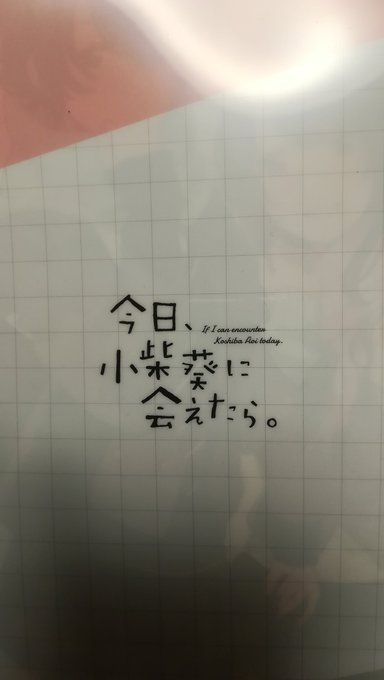 今日、
If I can encounter
Koshiba Aoi today.
小柴葵に
会えたら。